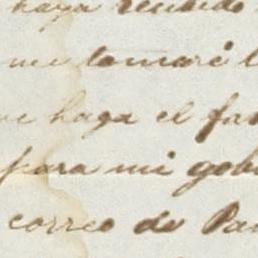 haya recibido
me tomaré l
ue haga el fav
para mi gob
correo de Pa